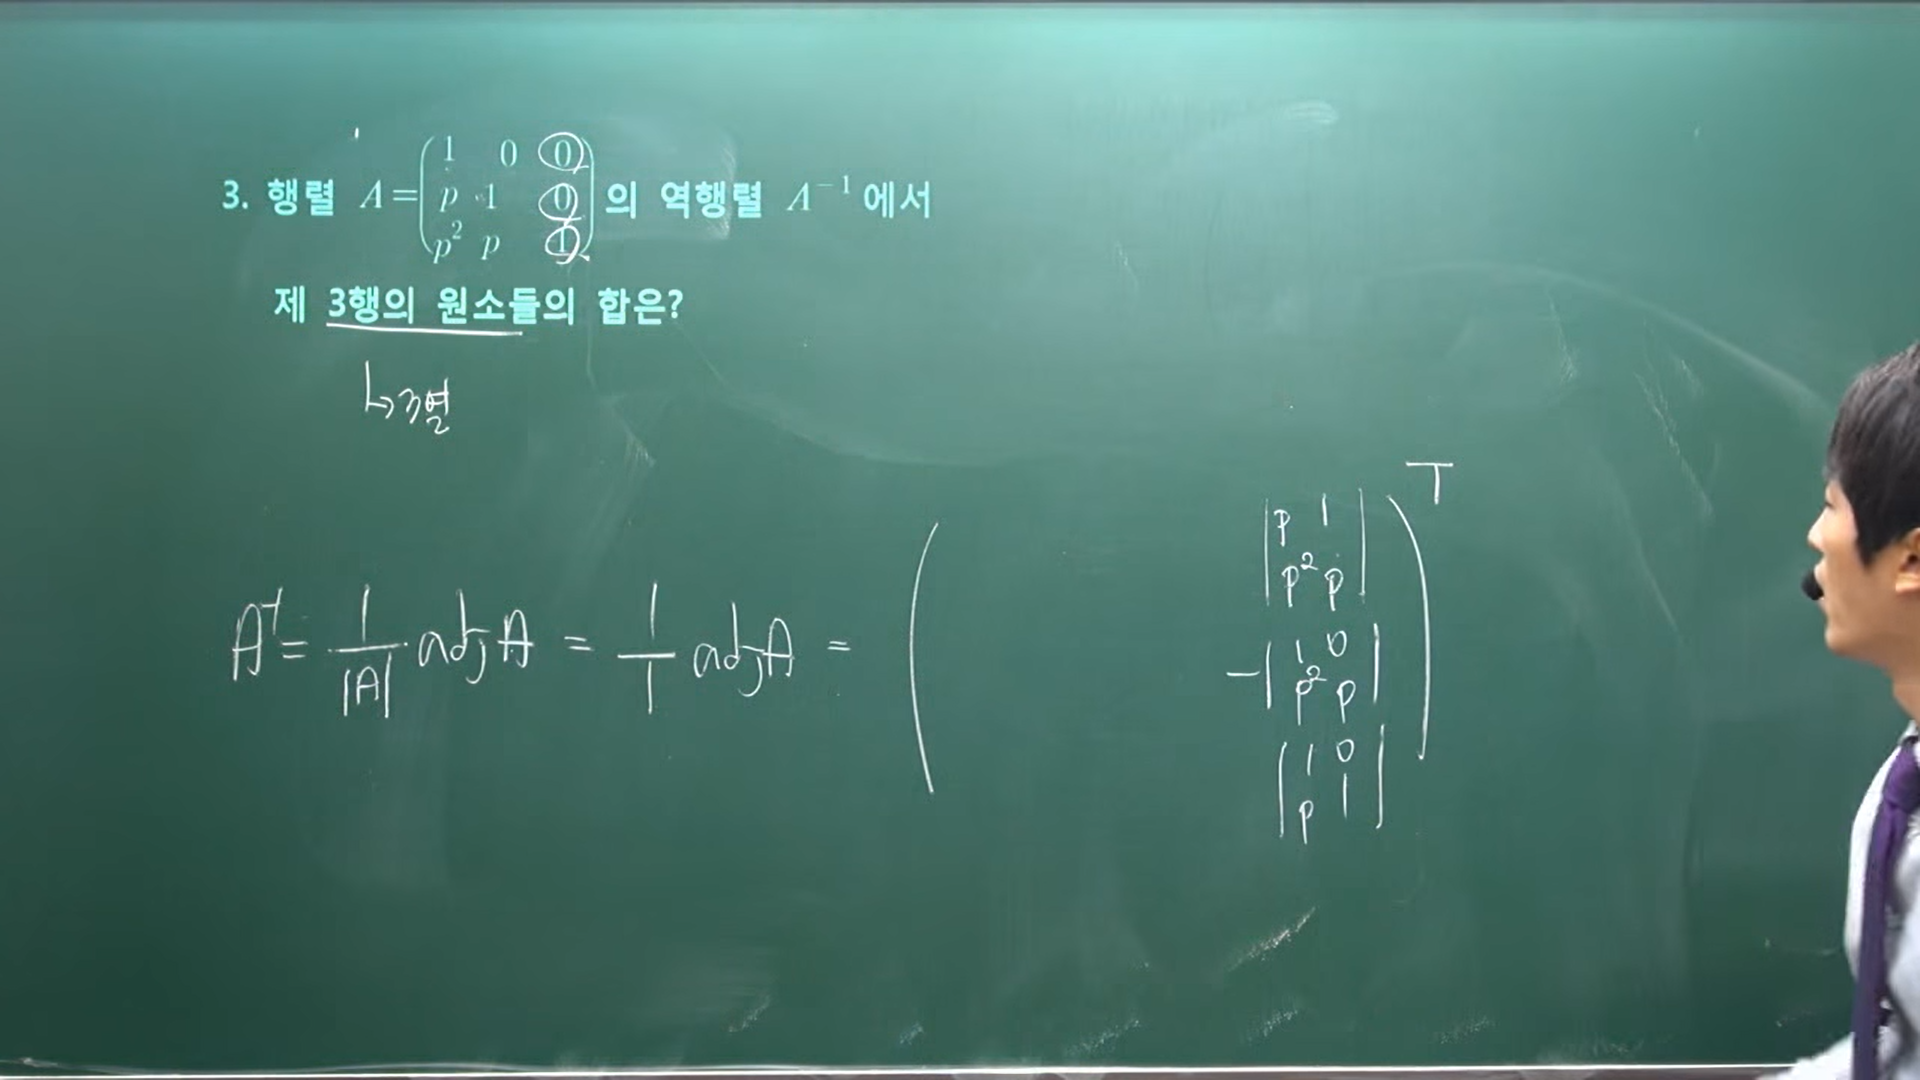 3. 행렬 A=(1 0 0
p 1 0
p² p 1)의 역행렬 A⁻¹에서
제 3행의 원소들의 합은?
↳3열
A⁻¹ = 1/|A| · adj A = 1/1 adj A = ( |p 1
p² p|
-|1 0
p² p|
|1 0
p 1| )ᵀ